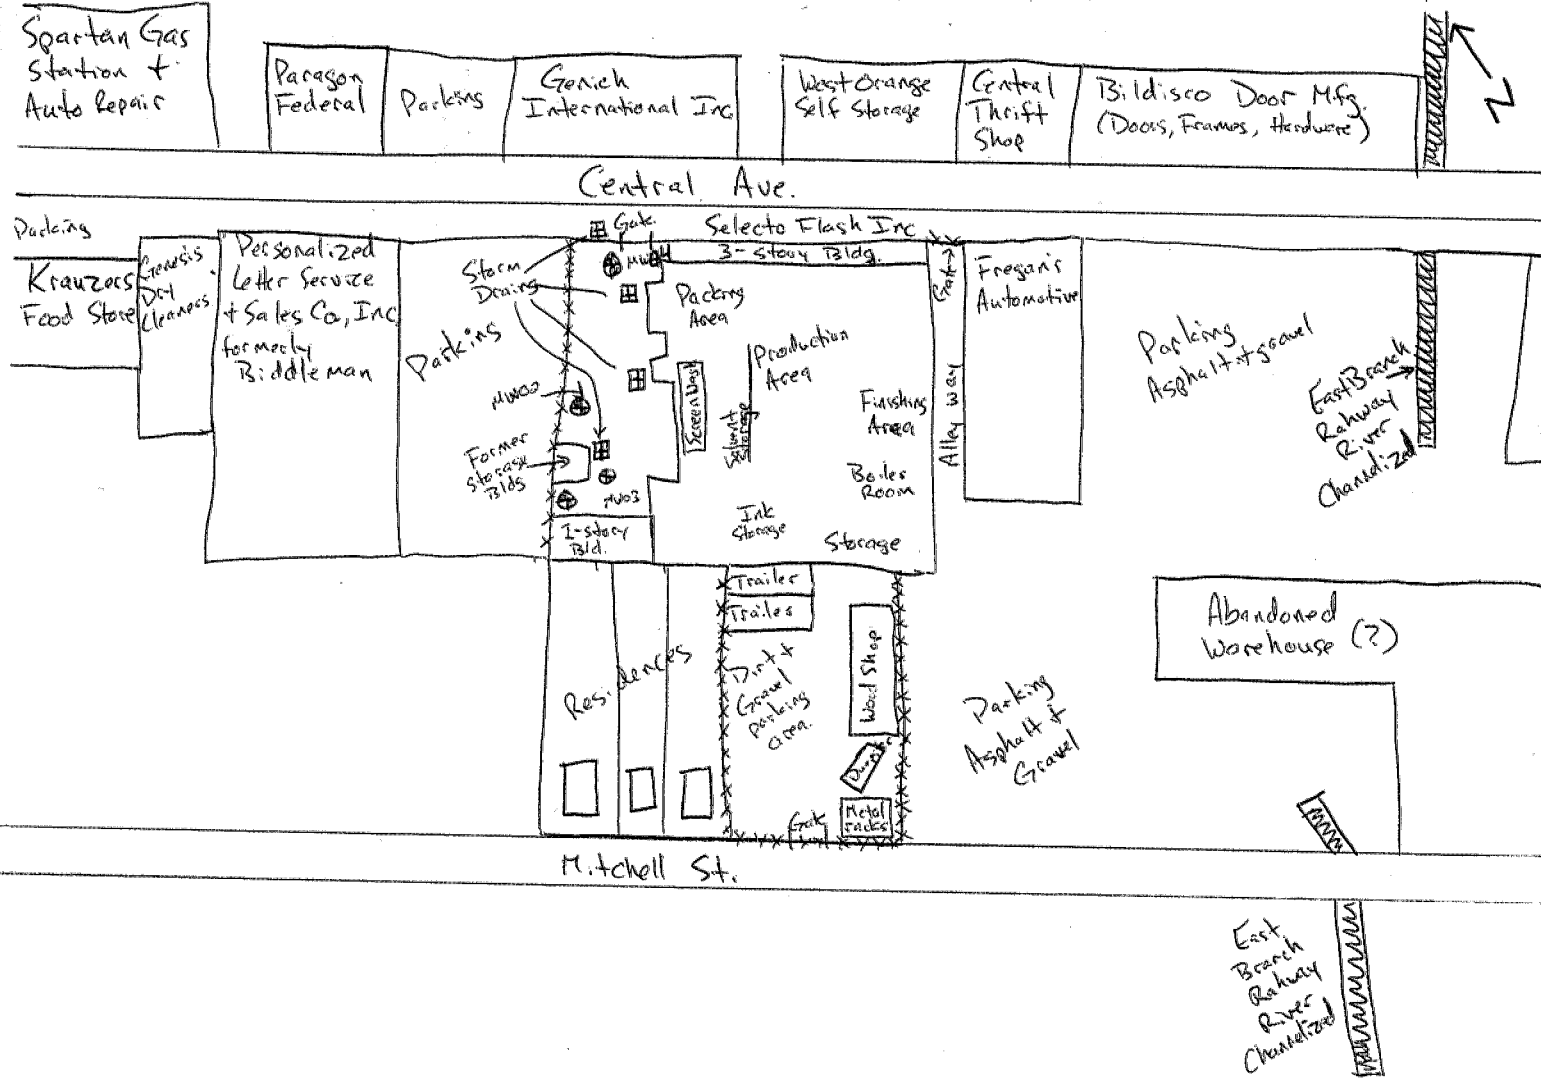 Spartan Gas
Station +
Auto Repair
Paragon
Federal
Parking
Genich
International Inc
West Orange
Self Storage
Central
Thrift
Shop
Bildisco Door Mfg.
(Doors, Frames, Hardware)
N
Central Ave.
Parking
Krauzers
Food Store
Genesis
Dry
Cleaners
Personalized
Letter Service
+ Sales Co, Inc
formerly
Biddleman
Parking
Storm
Drains
Gate
Selecto Flash Inc
3-Story Bldg.
Packing
Area
Production
Area
Screen Wash
Solvent
Storage
Finishing
Area
Boiler
Room
Ink
Storage
Storage
MW02
Former
Storage
Bldg
MW03
1-story
Bld.
Gate
Alley way
Fregan's
Automotive
Parking
Asphalt + gravel
East Branch
Rahway
River
Channelized
Residences
Trailer
Trailer
Dirt +
Gravel
parking
area.
Wood Shop
Metal
racks
Gate
Parking
Asphalt +
Gravel
Abandoned
Warehouse (?)
Mitchell St.
East
Branch
Rahway
River
Channelized